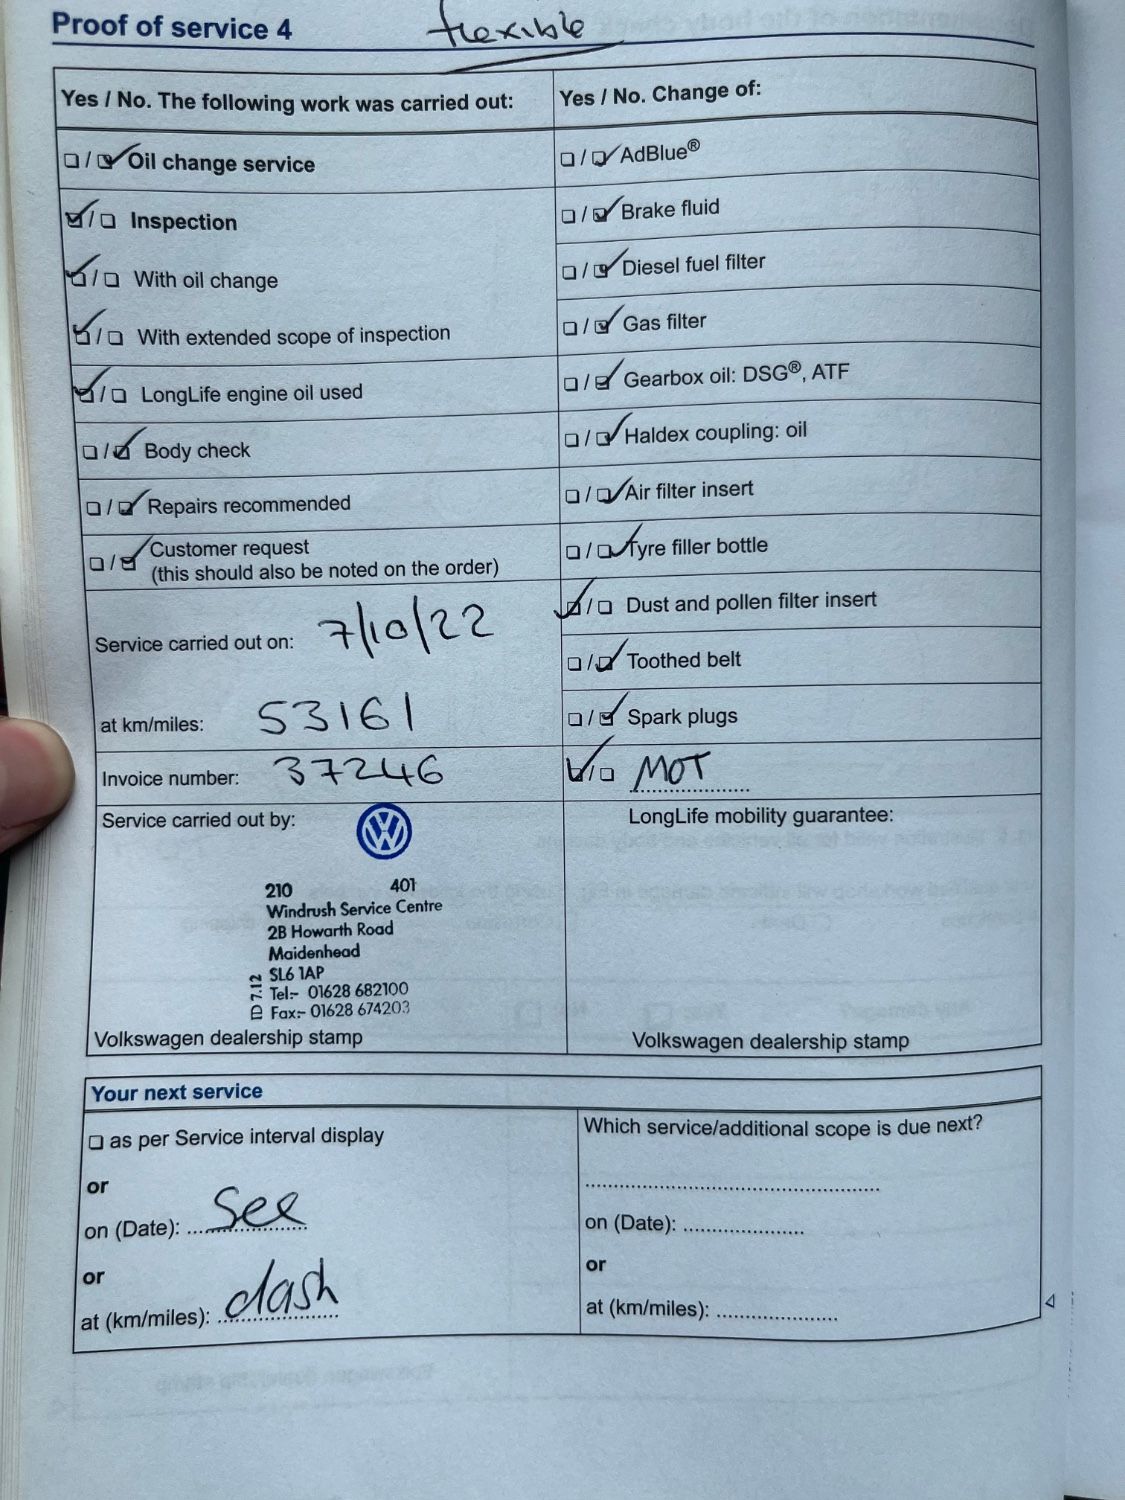 Proof of service 4
flexible
Yes / No. The following work was carried out:
Oil change service
Inspection
With oil change
With extended scope of inspection
LongLife engine oil used
Body check
Repairs recommended
Customer request
(this should also be noted on the order)
Service carried out on: 7/10/22
at km/miles: 53161
Invoice number: 37246
Service carried out by:
210 401
Windrush Service Centre
2B Howarth Road
Maidenhead
SL6 1AP
Tel:- 01628 682100
Fax:- 01628 674203
ID 7.12
Volkswagen dealership stamp
Yes / No. Change of:
AdBlue®
Brake fluid
Diesel fuel filter
Gas filter
Gearbox oil: DSG®, ATF
Haldex coupling: oil
Air filter insert
Tyre filler bottle
Dust and pollen filter insert
Toothed belt
Spark plugs
MOT
LongLife mobility guarantee:
Volkswagen dealership stamp
Your next service
as per Service interval display
or
on (Date): See
or
at (km/miles): dash
Which service/additional scope is due next?
on (Date):
or
at (km/miles):